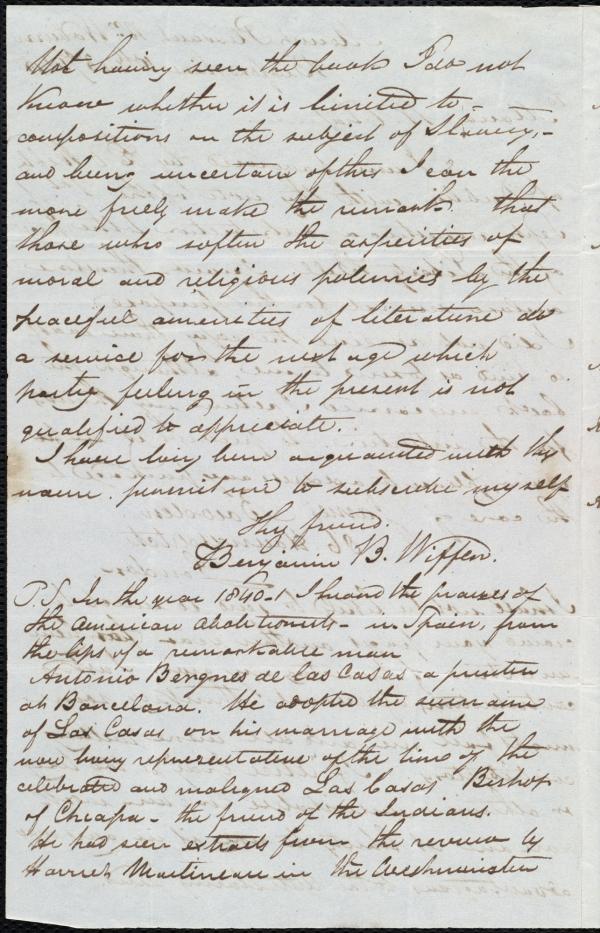 Not having seen the book I do not
know whether it is limited to -
compositions on the subject of Slavery, -
and being uncertain of this I can the
more freely make the remark that
those who soften the asperities of
moral and religious polemics by the
peaceful amenities of literature do
a service for the next age which
party feeling in the present is not
qualified to appreciate.
I have long been acquainted with thy
name. permit me to subscribe myself
Thy friend.
Benjamin B. Wiffen.
P.S. In the year 1840-1 I heard the praises of
the American abolitionists - in Spain, from
the lips of a remarkable man
Antonio Bergnes de las Casas, a printer
at Barcelona. He adopted the surname
of Las Casas on his marriage with the
now living representative of the line of the
celebrated and maligned Las Casas Bishop
of Chiapa - the friend of the Indians.
He had seen extracts from the review by
Harriet Martineau in the Westminster